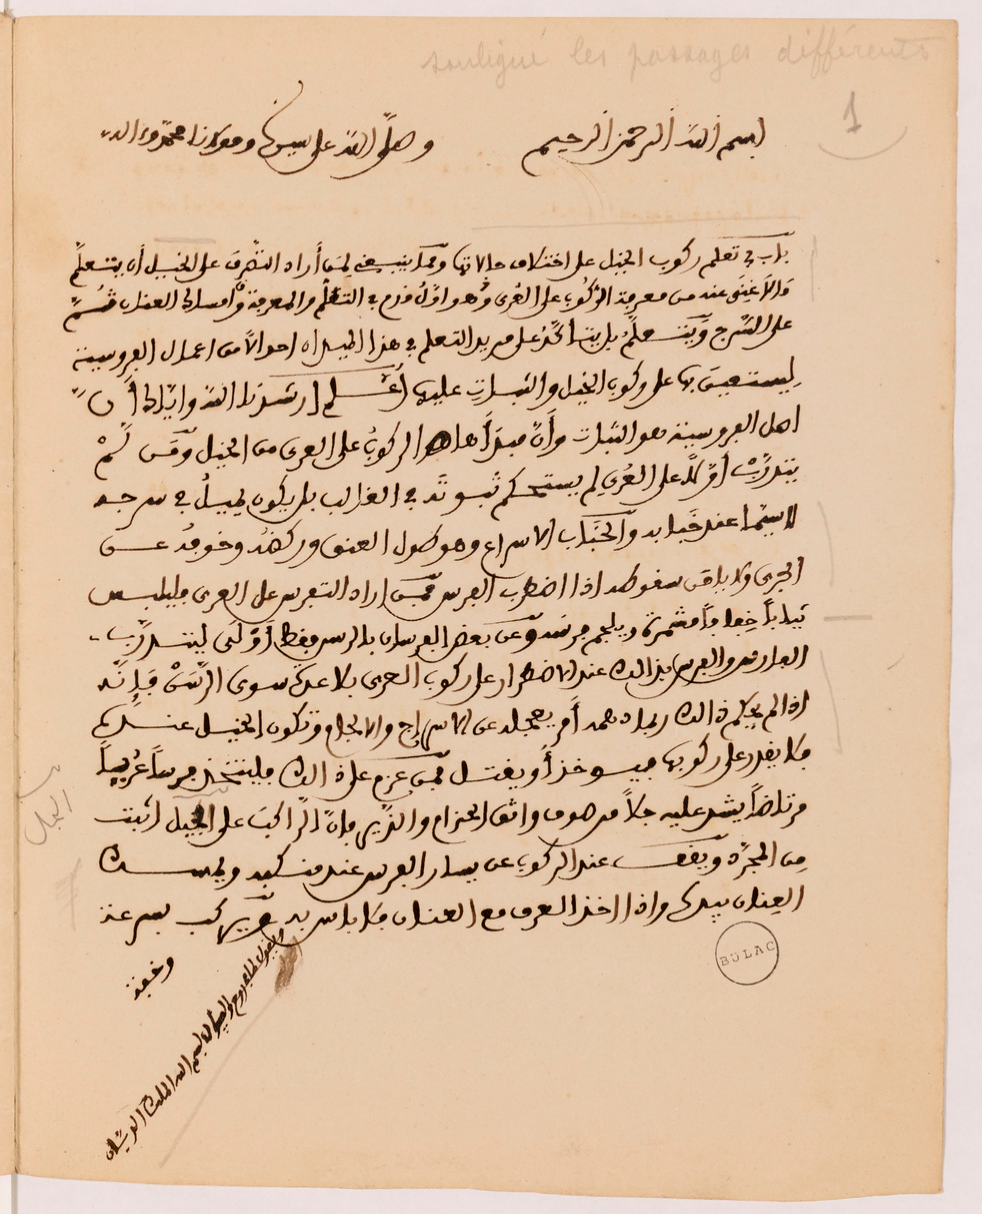 souligné les passages différents
1
بسم الله الرحمن الرحيم وصلى الله على سيدنا ومولانا محمد وءاله
باب في تعلم ركوب الخيل على اختلاف حالاتها ومما ينبغي لمن أراد التصرف على الخيل أن يتعلم
ما لا غنى عنه من معرفة الركوب على العُرى وهو اول قدم في التعلم والمعرفة وامساك العنان ثم
على السرج ويتعلم بل يتأكد على مريد التعلم في هذا الميدان احوالا من اعمال الفروسية
ليستعين بها على ركوب الخيل والثبات عليها اعلم ارشدنا الله واياك أن
اهل الفروسية هو الثبات وأن مبدأها الركوب على العرى من الخيل ومن لم
يتدرب أولا على العُرى لم يستحكم ثبوته في الغالب بل يكون يميل في سرجه
لاسيما عند خبابه والخباب الاسراع وهو طول العنق وركضه وخوفه عن
الجرى ولا يلقى سقوطه اذا اضطرب الفرس فمن اراد التفرس على العرى فليلبس
ثيابا خفافا مشمرة ويلجم فرسه وعن بعض الفرسان بالرسن فقط أولى ليتدرب
الفارس والفرس بذالك عند الاضطرار على ركوب العرى بلا عدة سوى الرسن فإنه
اذا لم يحكم ذالك ربما دهمه أمر يعجله عن الاسراج والالجام وتكون الخيل عنده
فلا يقدر على ركوبها فيوخذ أو يقتل فمن عزم على ذالك فليتخذ فرسا عربيا
مرتاضا يشد عليه جلا من صوف واثق الحزام والزير فإن الراكب على الجل اثبت
من المجرد ويقف عند الركوب عن يسار الفرس عند منكبه ويمسك
العنان بيده واذا اخذ العرف مع العنان فلا باس به ويركب بسرعة
وخفة
الجل
BULAC